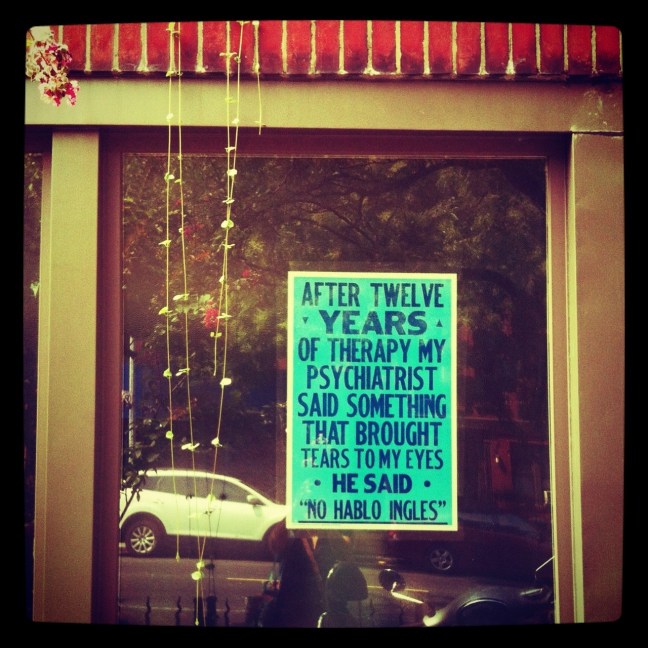 AFTER TWELVE
YEARS
OF THERAPY MY
PSYCHIATRIST
SAID SOMETHING
THAT BROUGHT
TEARS TO MY EYES
• HE SAID •
"NO HABLO INGLES"